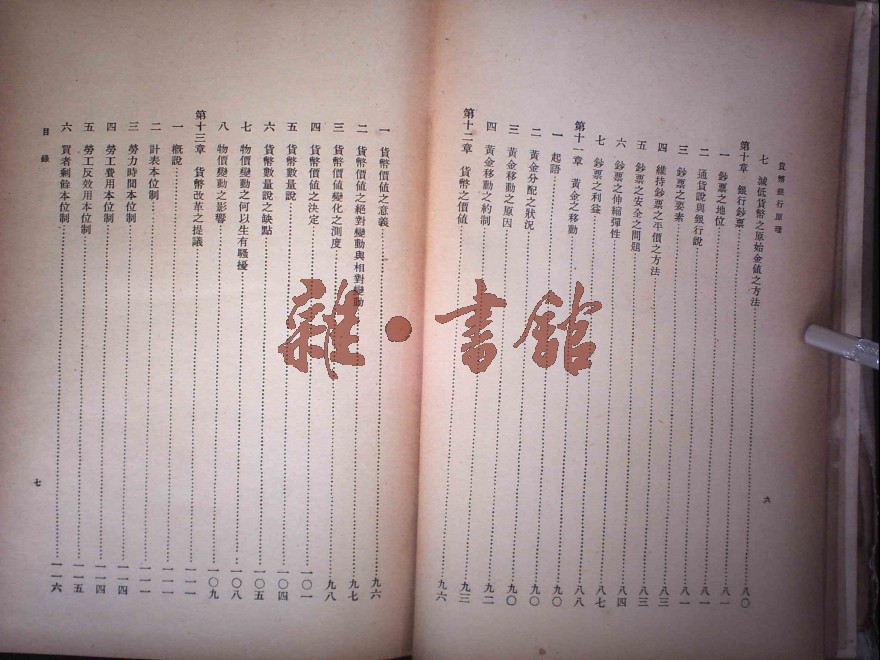 貨幣銀行原理
七 減低貨幣之原始金值之方法……八〇
第十章 銀行鈔票……八一
一 鈔票之地位……八一
二 通貨說與銀行說……八一
三 鈔票之要素……八一
四 維持鈔票之平價之方法……八三
五 鈔票之安全之問題……八三
六 鈔票之伸縮彈性……八四
七 鈔票之利益……八七
第十一章 黃金之移動……八八
一 起語……九〇
二 黃金分配之狀況……九〇
三 黃金移動之原因……九〇
四 黃金移動之約制……九二
第十二章 貨幣之價值……九三
六
一 貨幣價值之意義……九六
二 貨幣價值之絕對變動與相對變動……九七
三 貨幣價值變化之測度……九八
四 貨幣價值之決定……一〇一
五 貨幣數量說……一〇四
六 貨幣數量說之缺點……一〇五
七 物價變動之何以生有騷擾……一〇八
八 物價變動之影響……一〇九
第十三章 貨幣改革之提議……一一一
一 概說……一一一
二 計表本位制……一一一
三 勞力時間本位制……一一四
四 勞工費用本位制……一一四
五 勞工反效用本位制……一一五
六 買者剩餘本位制……一一六
目錄
七
雜·書館